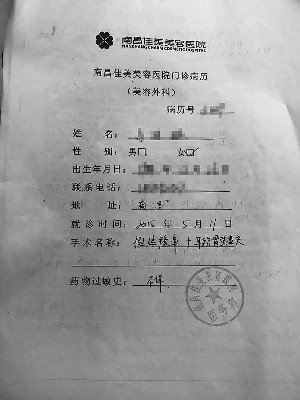 南昌佳美美容医院
NANCHANGCHARM COSMETIC HOSPITAL
南昌佳美美容医院门诊病历
(美容外科)
病历号
姓 名:
性 别: 男 女
出生年月日:
联系电话:
地 址: 南昌
就诊时间: 2015年5月11日
手术名称: 假体隆鼻+耳软骨垫鼻尖
药物过敏史: 不详